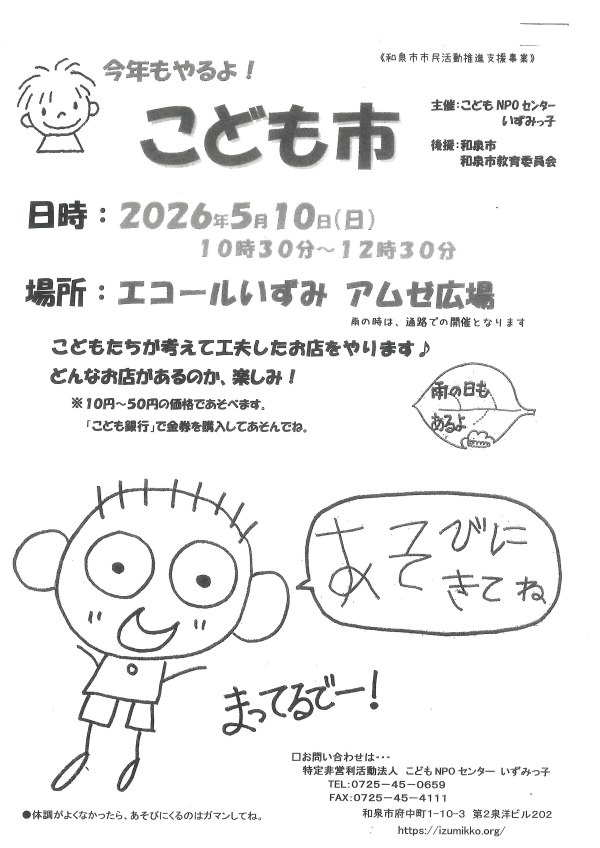 《和泉市市民活動推進支援事業》
今年もやるよ！
こども市
主催：こども NPO センター
いずみっ子
後援：和泉市
和泉市教育委員会
日時：2026年5月10日（日）
10時30分～12時30分
場所：エコールいずみ アムゼ広場
雨の時は、通路での開催となります
こどもたちが考えて工夫したお店をやります♪
どんなお店があるのか、楽しみ！
※10円～50円の価格であそべます。
「こども銀行」で金券を購入してあそんでね。
雨の日も
あるよ
あそびに
きてね
まってるでー！
□お問い合わせは・・・
特定非営利活動法人 こどもNPOセンター いずみっ子
TEL:0725-45-0659
FAX:0725-45-4111
和泉市府中町1-10-3 第2泉洋ビル202
https://izumikko.org/
●体調がよくなかったら、あそびにくるのはガマンしてね。